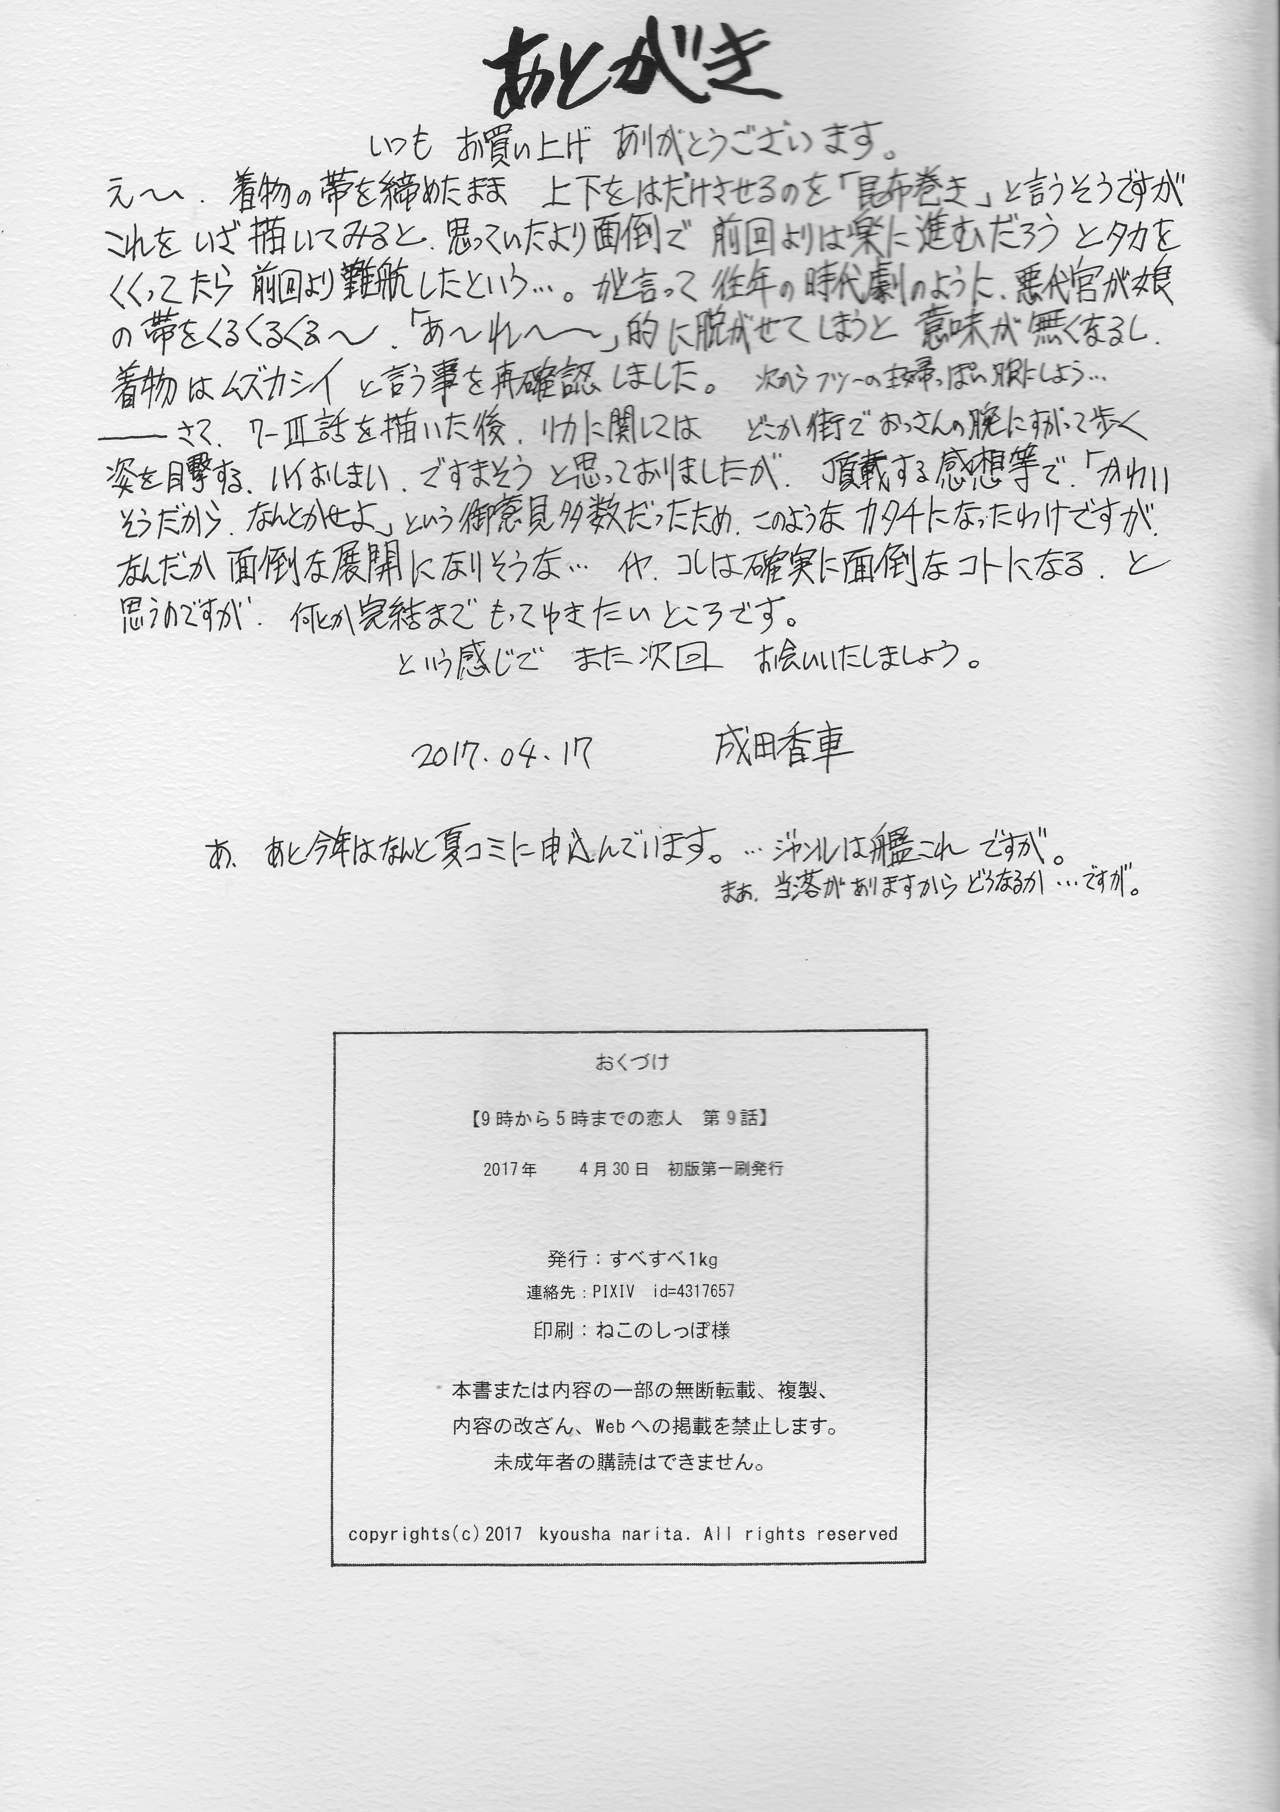 あとがき
いつも お買い上げ ありがとうございます。
え〜、着物の帯を締めたまま 上下をはだけさせるのを「昆布巻き」と言うそうですが
これを いざ 描いてみると、思っていたより面倒で 前回よりは楽に進むだろう とタカを
くくってたら 前回より難航したという…。かと言って 往年の時代劇のように、悪代官が娘
の帯をくるくるくる〜、「あ〜れ〜〜」的に脱がせてしまうと 意味が無くなるし、
着物はムズカシイ と言う事を再確認しました。 次からフツーの主婦っぽい服にしよう…
――さて、7-Ⅲ話を描いた後、リカに関しては どこか街でおっさんの腕にすがって歩く
姿を目撃する、ハイおしまい、ですまそう と思っておりましたが、頂戴する感想等で、「かわい
そうだから、なんとかせよ」という御意見多数だったため、このような カタチになったわけですが、
なんだか 面倒な展開になりそうな… イヤ、コレは確実に面倒なコトになる、と
思うのですが、何とか完結まで もってゆきたいところです。
という感じで また次回 お会いいたしましょう。
2017.04.17 成田香車
あ、あと今年はなんと夏コミに申込んでいます。…ジャンルは艦これ ですが。
まあ、当落がありますから どうなるか…ですが。
おくづけ
【9時から5時までの恋人 第9話】
2017年 4月30日 初版第一刷発行
発行：すべすべ1kg
連絡先：PIXIV id=4317657
印刷：ねこのしっぽ様
本書または内容の一部の無断転載、複製、
内容の改ざん、Webへの掲載を禁止します。
未成年者の購読はできません。
copyrights(c)2017 kyousha narita. All rights reserved